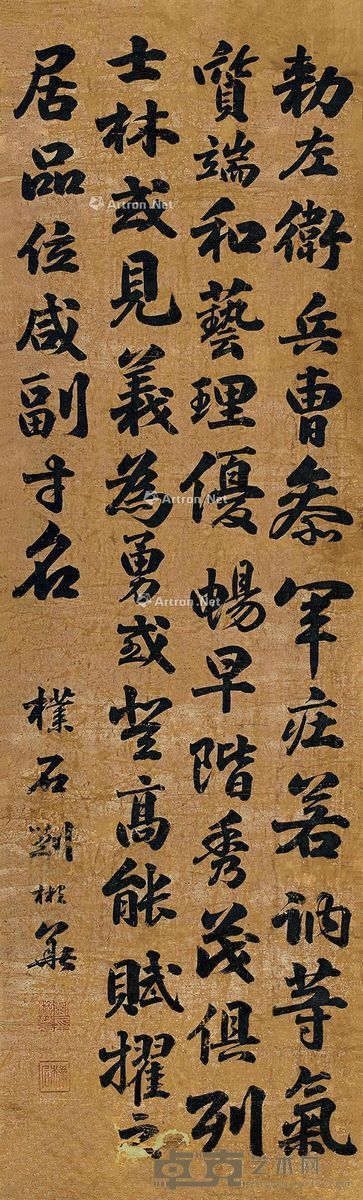 勑左衛兵曹叅軍莊若訥等氣
質端和藝理優暢早階秀茂俱列
士林或見義為勇或登高能賦擢之
居品位咸副才名
樸石劉彬華
Artron.Net
Artron.Net
Artron.Net
卓克艺术网